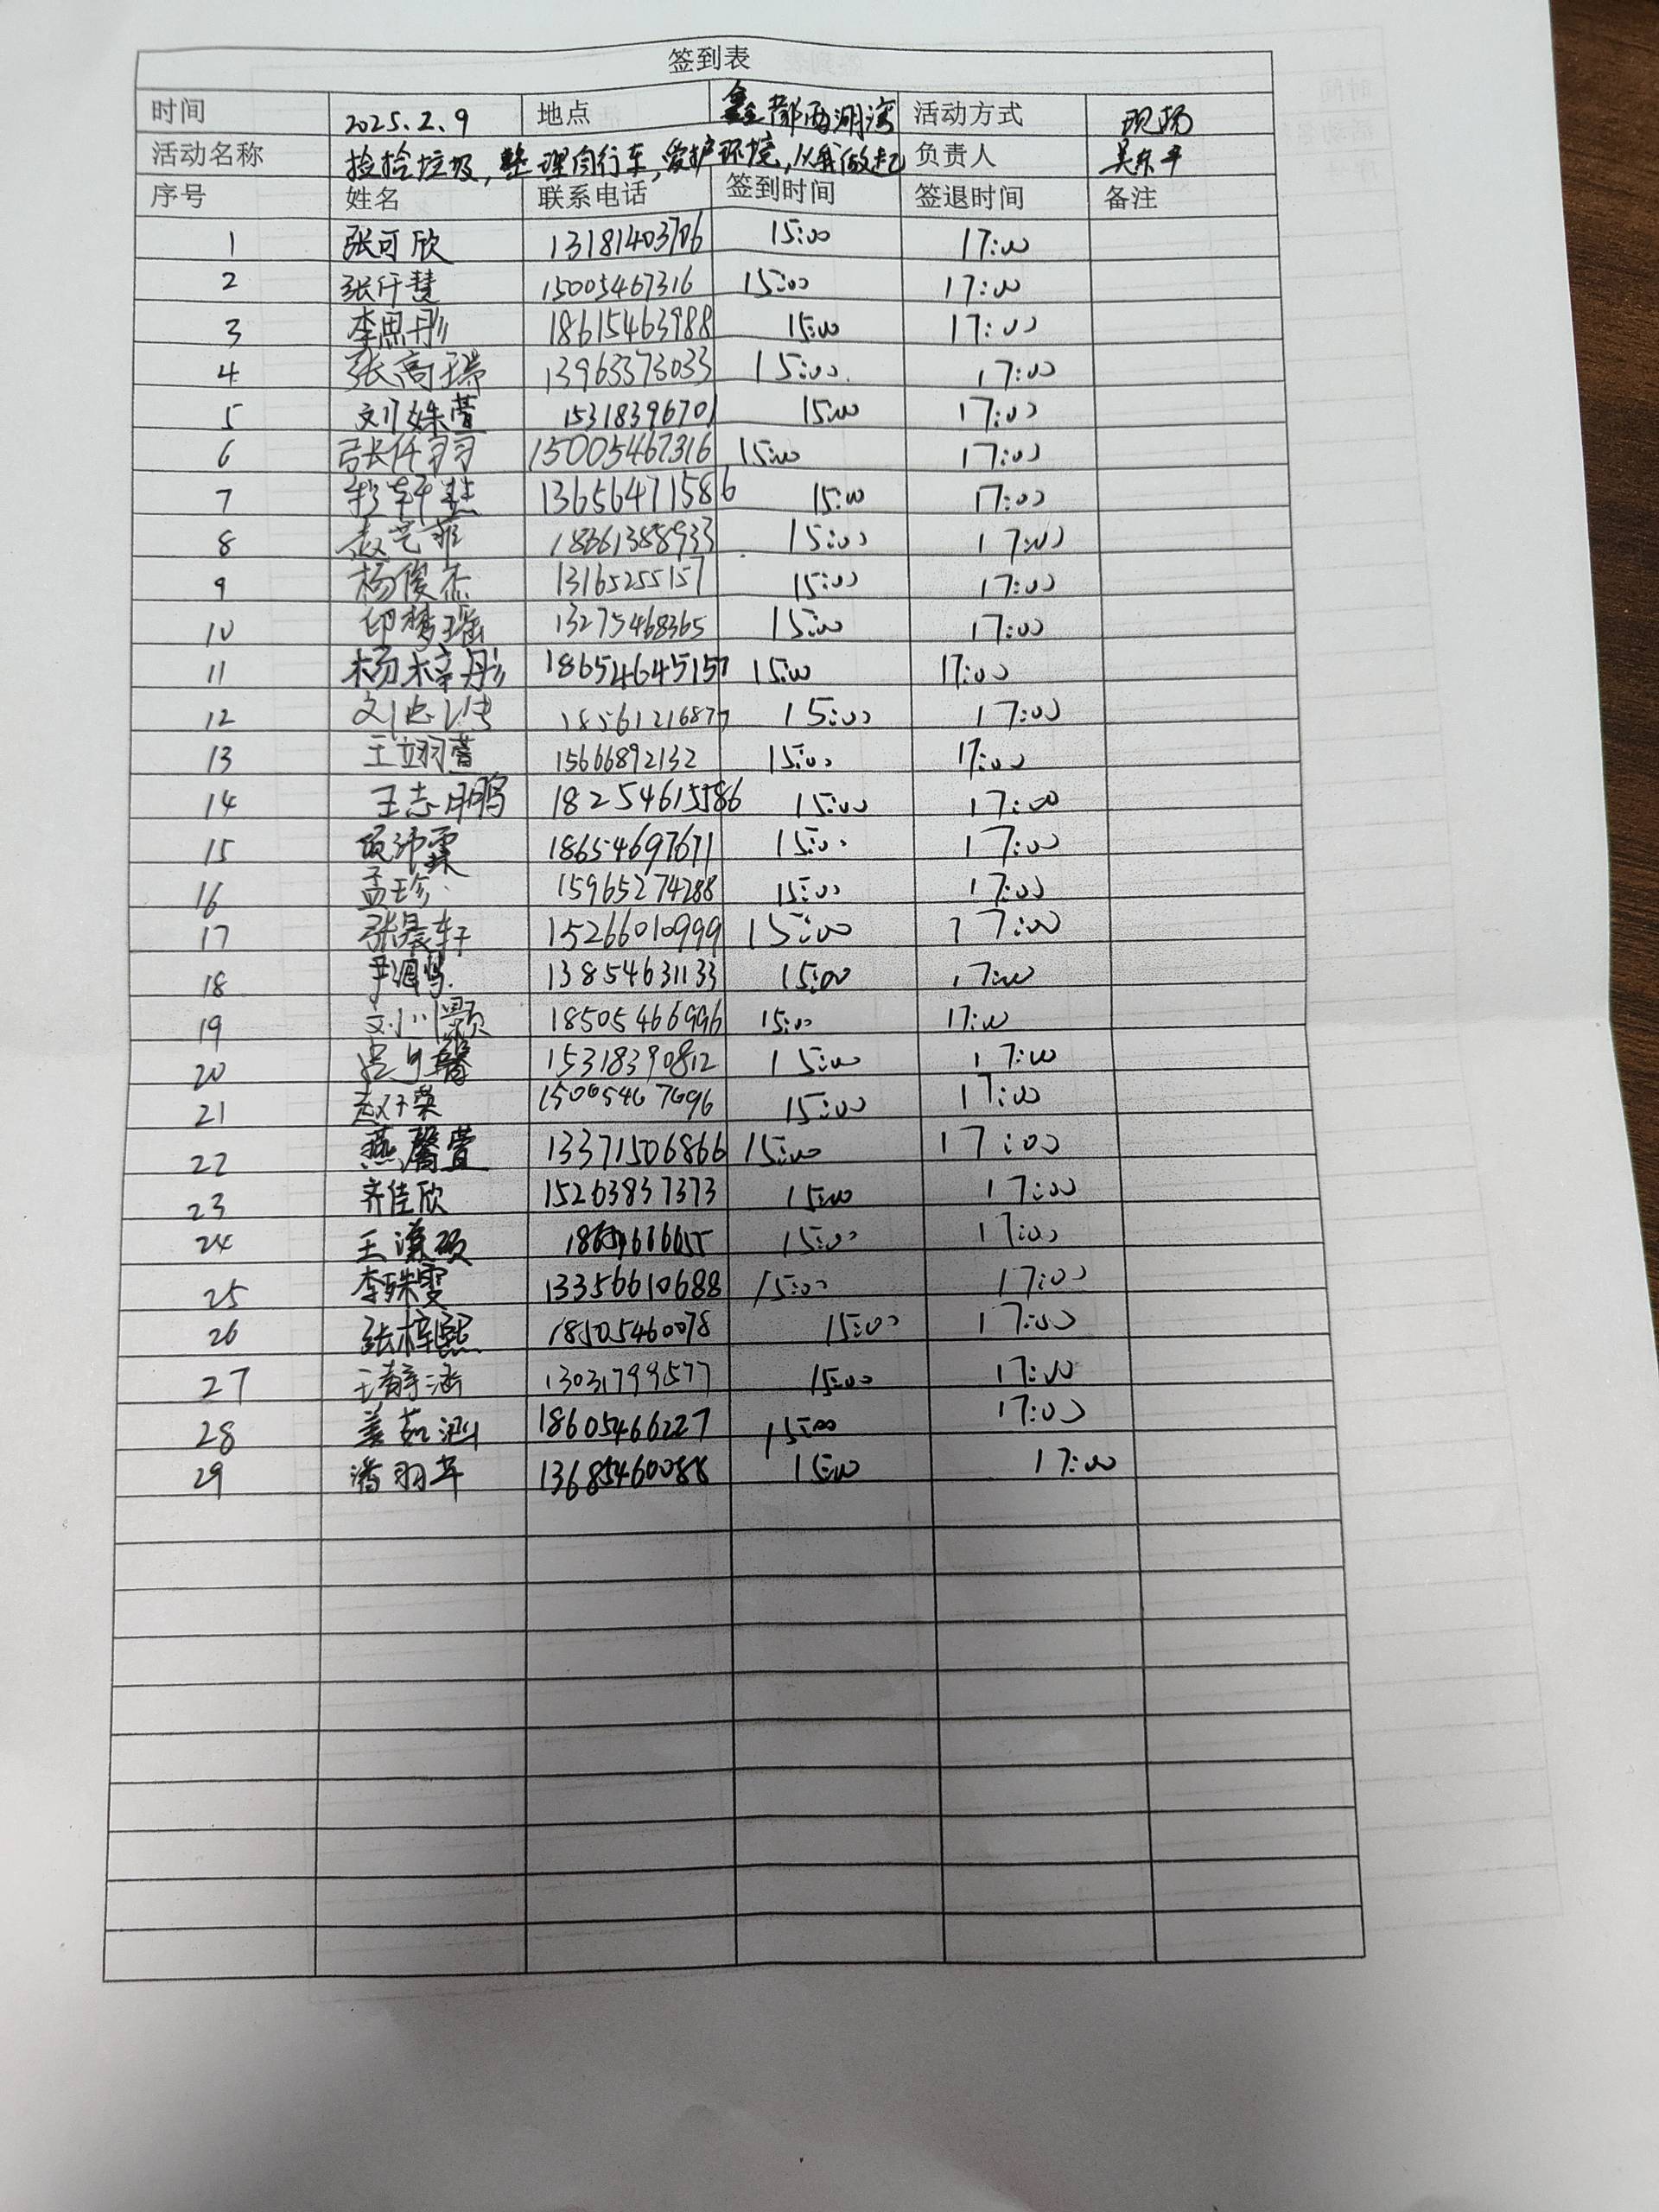 签到表
时间 2025.2.9 地点 鑫都西湖湾 活动方式 现场
活动名称 捡捡垃圾,整理自行车,爱护环境,从我做起 负责人 吴东平
序号 姓名 联系电话 签到时间 签退时间 备注
1 张可欣 13181403706 15:00 17:00
2 张仟慧 15005467316 15:00 17:00
3 李思彤 18615463988 15:00 17:00
4 张高瑞 13963373033 15:00 17:00
5 刘姝萱 15318396701 15:00 17:00
6 张仟羽 15005467316 15:00 17:00
7 13656471586 15:00 17:00
8 袁艺菲 18661388933 15:00 17:00
9 杨俊杰 13165255157 15:00 17:00
10 印梦瑶 13275468365 15:00 17:00
11 杨梓彤 18654645157 15:00 17:00
12 18561216877 15:00 17:00
13 王翊萱 15666892132 15:00 17:00
14 王志鹏 18254615586 15:00 17:00
15 18654697671 15:00 17:00
16 孟珍 15965274288 15:00 17:00
17 张晨轩 15266010999 15:00 17:00
18 13854631133 15:00 17:00
19 刘灏 18505466996 15:00 17:00
20 15318390812 15:00 17:00
21 赵子荣 15:00 17:00
22 燕馨萱 13371506866 15:00 17:00
23 齐佳欣 15263837373 15:00 17:00
24 15:00 17:00
25 李殊雯 13356610688 15:00 17:00
26 张梓熙 18505460078 15:00 17:00
27 王静涵 13031799577 15:00 17:00
28 姜茹涵 18605466227 15:00 17:00
29 潘羽华 13685460088 15:00 17:00